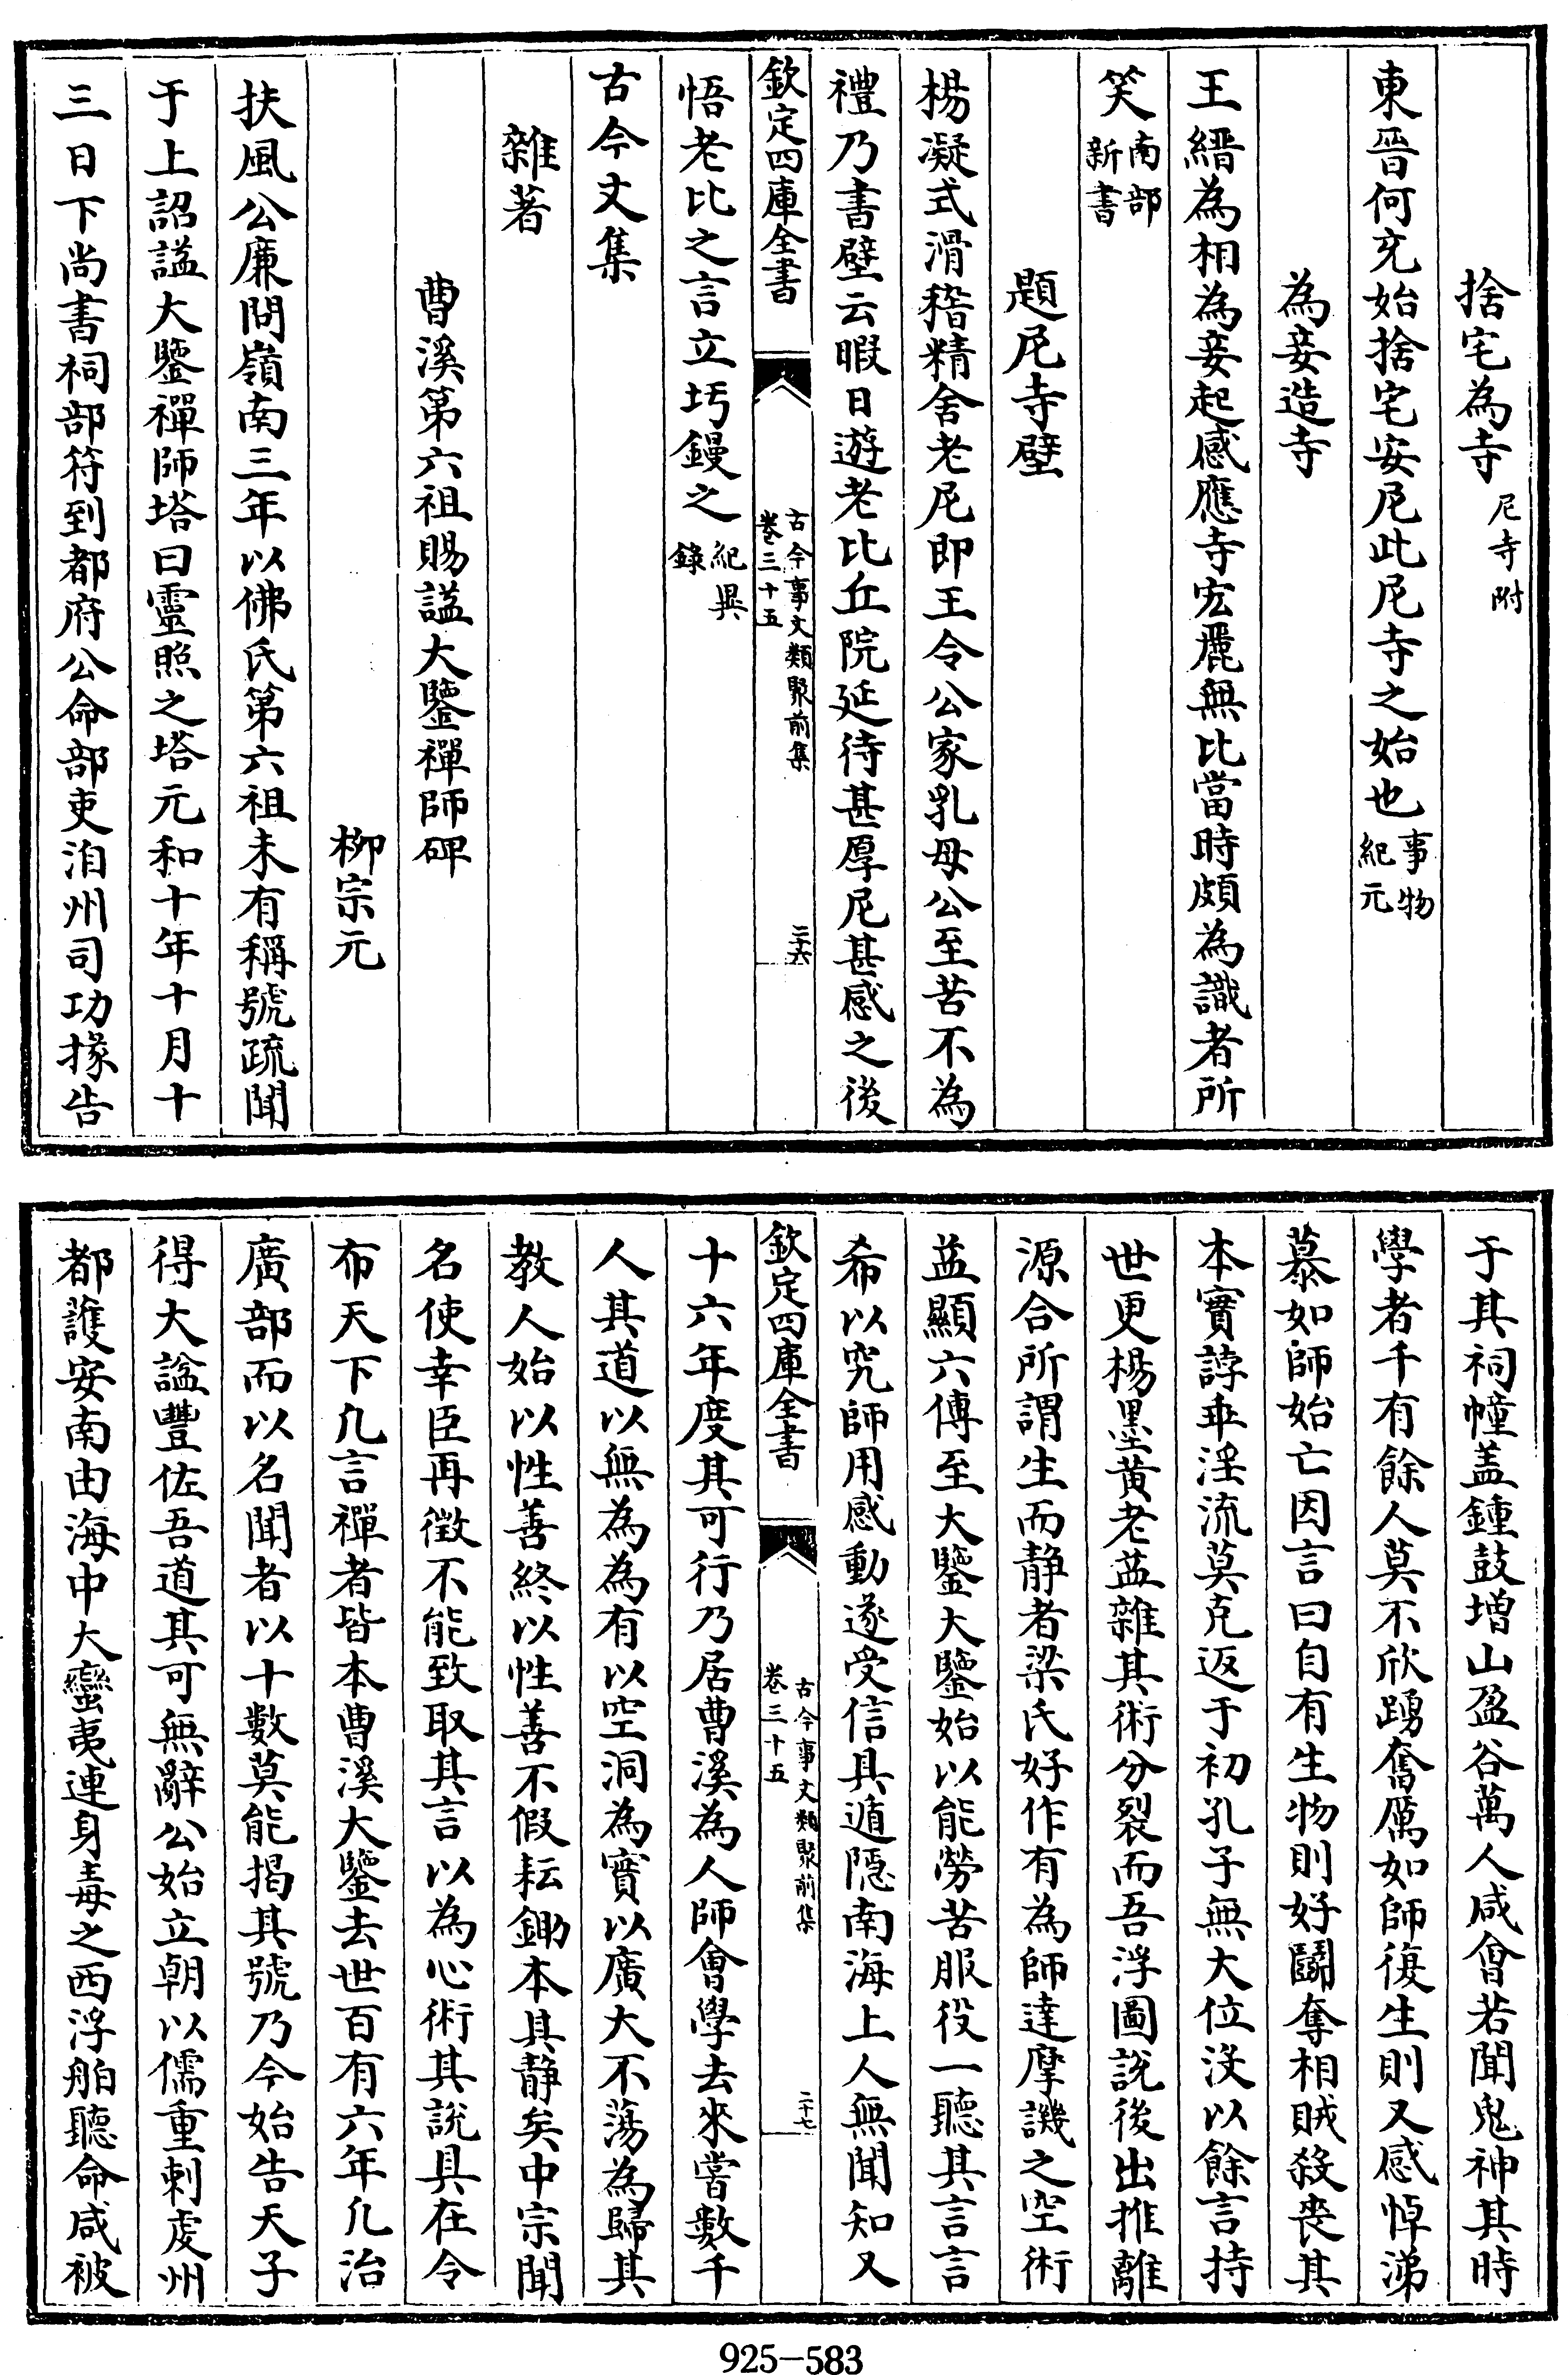 捨宅為寺尼寺附
東晉何充始捨宅安尼此尼寺之始也事物紀元
為妾造寺
王縉為相為妾起感應寺宏麗無比當時頗為識者所
笑南部新書
題尼寺壁
楊凝式滑稽精舍老尼即王令公家乳母公至苦不為
禮乃書壁云暇日遊老比丘院延待甚厚尼甚感之後
欽定四庫全書
古今事文類聚前集
卷三十五
二十六
悟老比之言立圬鏝之紀異錄
古今文集
雜著
曹溪第六祖賜諡大鑒禪師碑
柳宗元
扶風公廉問嶺南三年以佛氏第六祖未有稱號疏聞
于上詔諡大鑒禪師塔曰靈照之塔元和十年十月十
三日下尚書祠部符到都府公命部吏洎州司功掾告
于其祠幢盖鍾鼓增山盈谷萬人咸會若聞鬼神其時
學者千有餘人莫不欣踴奮厲如師復生則又感悼涕
慕如師始亡因言曰自有生物則好鬭奪相賊殺喪其
本實誖乖淫流莫克返于初孔子無大位沒以餘言持
世更楊墨黄老益雜其術分裂而吾浮圖說後出推離
源合所謂生而静者梁氏好作有為師達摩譏之空術
益顯六傳至大鑒大鑒始以能勞苦服役一聽其言言
希以究師用感動遂受信具遁隱南海上人無聞知又
欽定四庫全書
古今事文類聚前集
卷三十五
二十七
十六年度其可行乃居曹溪為人師會學去來嘗數千
人其道以無為為有以空洞為實以廣大不蕩為歸其
教人始以性善終以性善不假耘鋤本其静矣中宗聞
名使幸臣再徵不能致取其言以為心術其說具在今
布天下凡言禪者皆本曹溪大鑒去世百有六年凡治
廣部而以名聞者以十數莫能揭其號乃今始告天子
得大諡豐佐吾道其可無辭公始立朝以儒重刺虔州
都護安南由海中大蠻夷連身毒之西浮舶聽命咸被
925-583